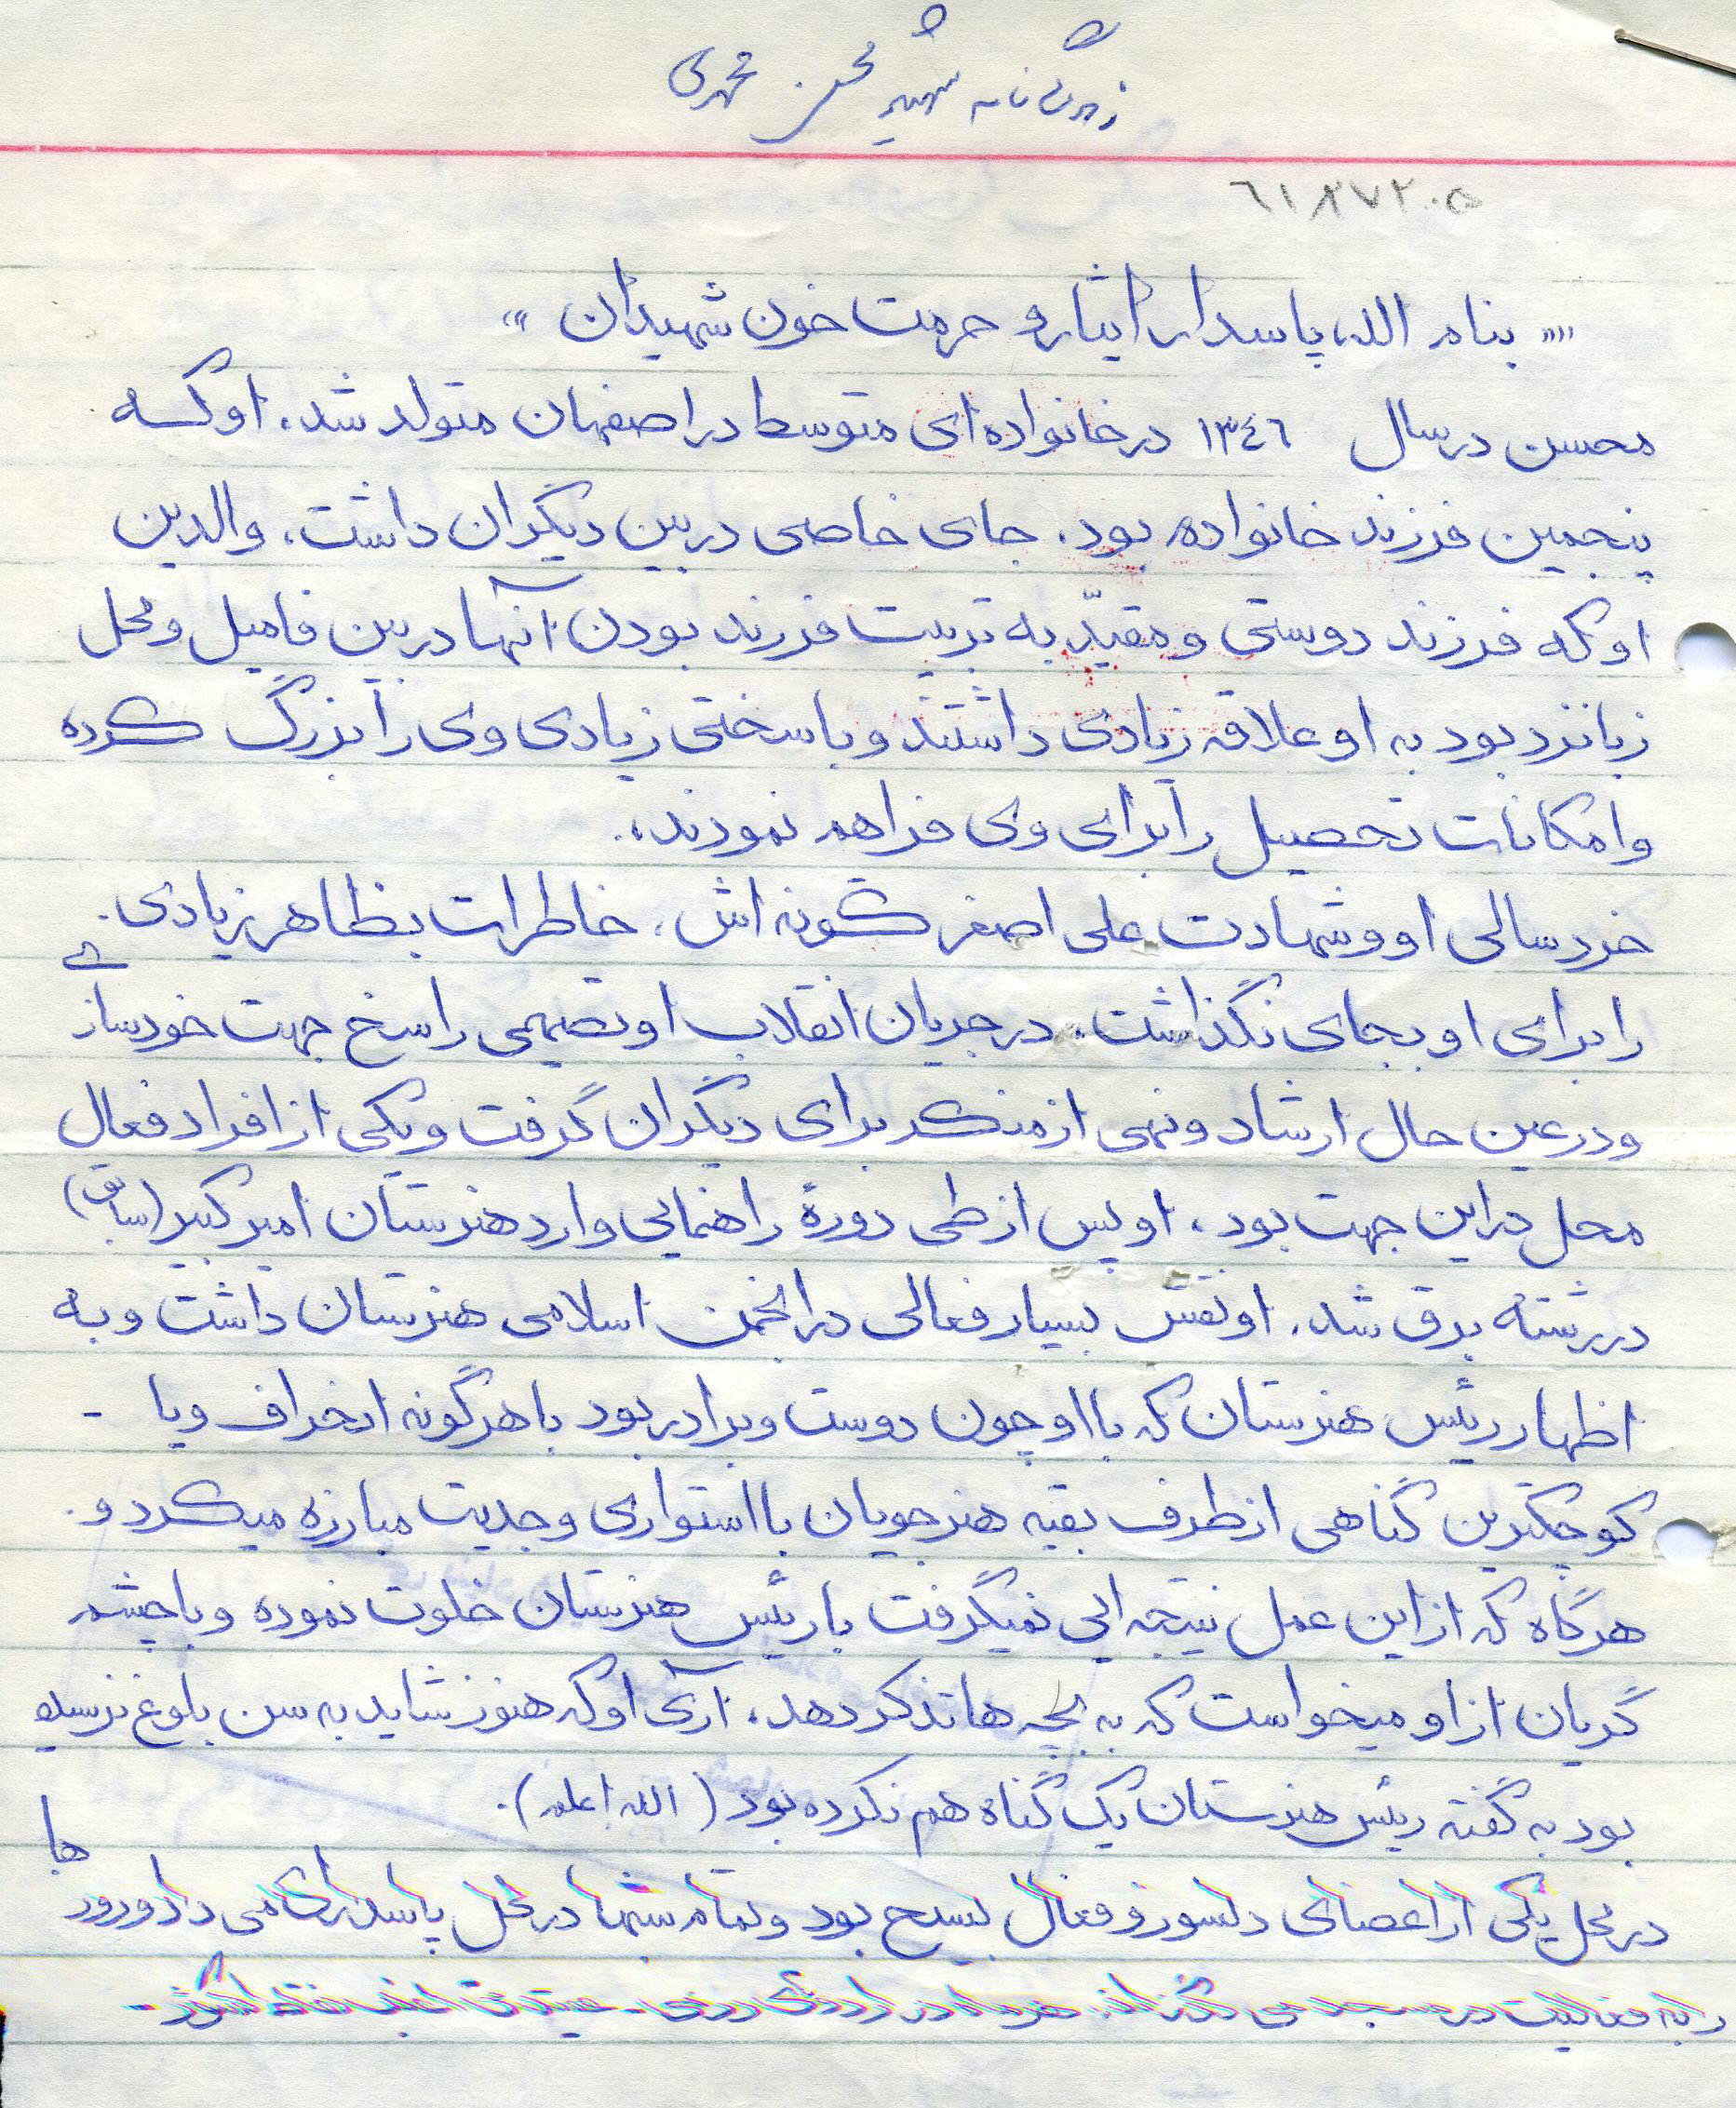 زندگی نامه شهید محسن محمدی
"" بنام الله پاسدار ایثار و حرمت خون شهیدان ""
محسن در سال ۱۳٤٦ در خانواده ای متوسط در اصفهان متولد شد. او کسه
پنجمین فرزند خانواده بود. جای خاصی در بین دیگران داشت. والدین
او که فرزند دوستی و مقیّد به تربیت فرزند بودن آنها در بین فامیل و محل
زبانزد بود به او علاقه زیادی داشتند و با سختی زیادی وی را بزرگ کرده
و امکانات تحصیل را برای وی فراهم نمودند.
خردسالی او و شهادت علی اصغر گونه اش، خاطرات بظاهر زیادی
را برای او بجای نگذاشت. در جریان انقلاب او تصمیمی راسخ جهت خودسازی
و در عین حال ارشاد و نهی از منکر برای دیگران گرفت و یکی از افراد فعال
محل در این جهت بود. او پس از طی دورهٔ راهنمایی وارد هنرستان امیرکبیر (سابق)
در رشته برق شد. او نقش بسیار فعالی در انجمن اسلامی هنرستان داشت و به
اظهار رئیس هنرستان که با او چون دوست و برادر بود با هرگونه انحراف و یا -
کوچکترین گناهی از طرف بقیه هنرجویان با استواری و جدیت مبارزه میکرد و
هرگاه که از این عمل نتیجه ایی نمیگرفت با رئیس هنرستان خلوت نموده و با چشم
گریان از او میخواست که به بچه ها تذکر دهد. آری او که هنوز شاید به سن بلوغ نرسیده
بود به گفته رئیس هنرستان یک گناه هم نکرده بود (الله اعلم).
در محل یکی از اعضای دلسوز و فعال بسیج بود و تمام شبها در محل پاسداری می داد و روزها
را به فعالیت در مسجد می گذراند. هر ماه در اردوی رزمی - عقیدتی